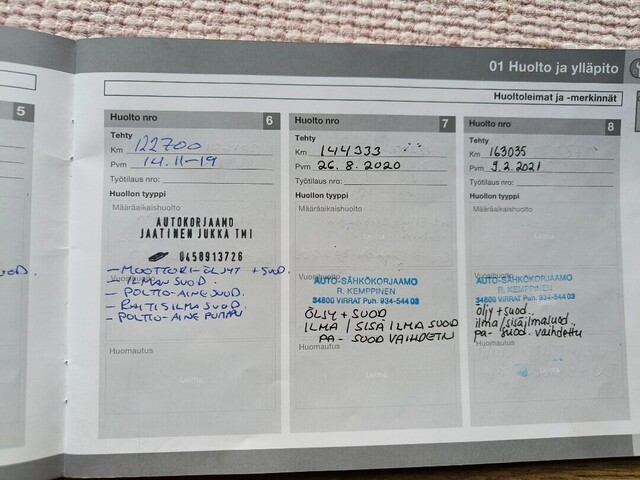 01 Huolto ja ylläpito
Huoltoleimat ja -merkinnät
5
Huolto nro 6
Tehty
Km 122700
Pvm 14.11-19
Työtilaus nro:
Huollon tyyppi
Määräaikaishuolto
AUTOKORJAAMO
JAATINEN JUKKA TMI
0458913726
- MOOTTORI-ÖLJYT + SUOD.
- ILMAN SUOD.
- POLTTO-AINE SUOD.
- RAITISILMA SUOD.
- POLTTO-AINE PUMPPU
Huomautus
Leima
Huolto nro 7
Tehty
Km 144333
Pvm 26.8.2020
Työtilaus nro:
Huollon tyyppi
Määräaikaishuolto
Leima
Vuosihuolto
AUTO-SÄHKÖKORJAAMO
R. KEMPPINEN
34800 VIRRAT Puh. 934-544 03
ÖLJY + SUOD
ILMA / SISÄ ILMA SUOD
PA- SUOD VAIHDETTU
Huomautus
Leima
Huolto nro 8
Tehty
Km 163035
Pvm 9.2.2021
Työtilaus nro:
Huollon tyyppi
Määräaikaishuolto
Leima
Vuosihuolto
AUTO-SÄHKÖKORJAAMO
R. KEMPPINEN
34800 VIRRAT Puh. 934-544 03
öljy + suod..
ilma/sisäilmasuod..
pa- suod. vaihdettu
Huomautus
Leima